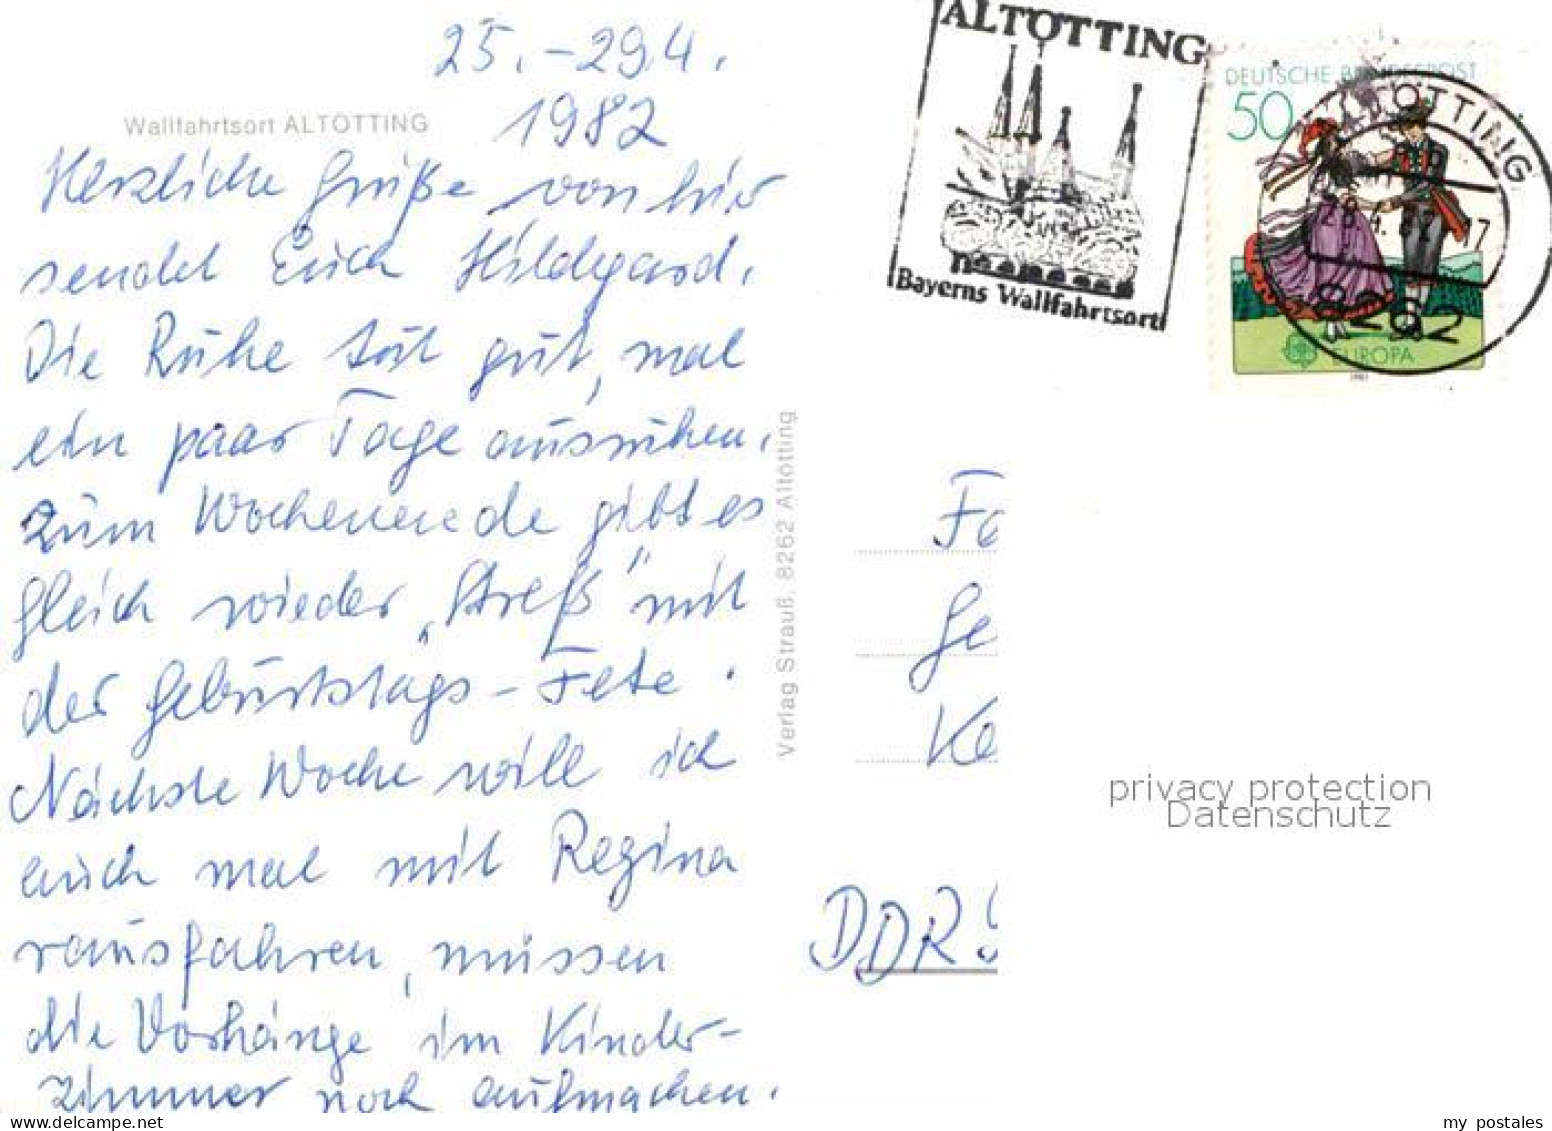 25.-29.4.
1982
Wallfahrtsort ALTÖTTING
Herzliche Grüße von hier
sendet Euch Hildegard.
Die Ruhe tut gut, mal
ein paar Tage ausruhen.
Zum Wochenende gibt es
gleich wieder „Streß" mit
der Geburtstags-Fete.
Nächste Woche will ich
auch mal mit Regina
rausfahren, müssen
die Vorhänge im Kinder-
zimmer noch aufmachen.
Verlag Strauß, 8262 Altötting
ALTÖTTING
Bayerns Wallfahrtsort
DEUTSCHE BUNDESPOST
50
EUROPA
1981
ALTÖTTING
8262
Fa
Ge
Ke
DDR 9
privacy protection
Datenschutz
my postales